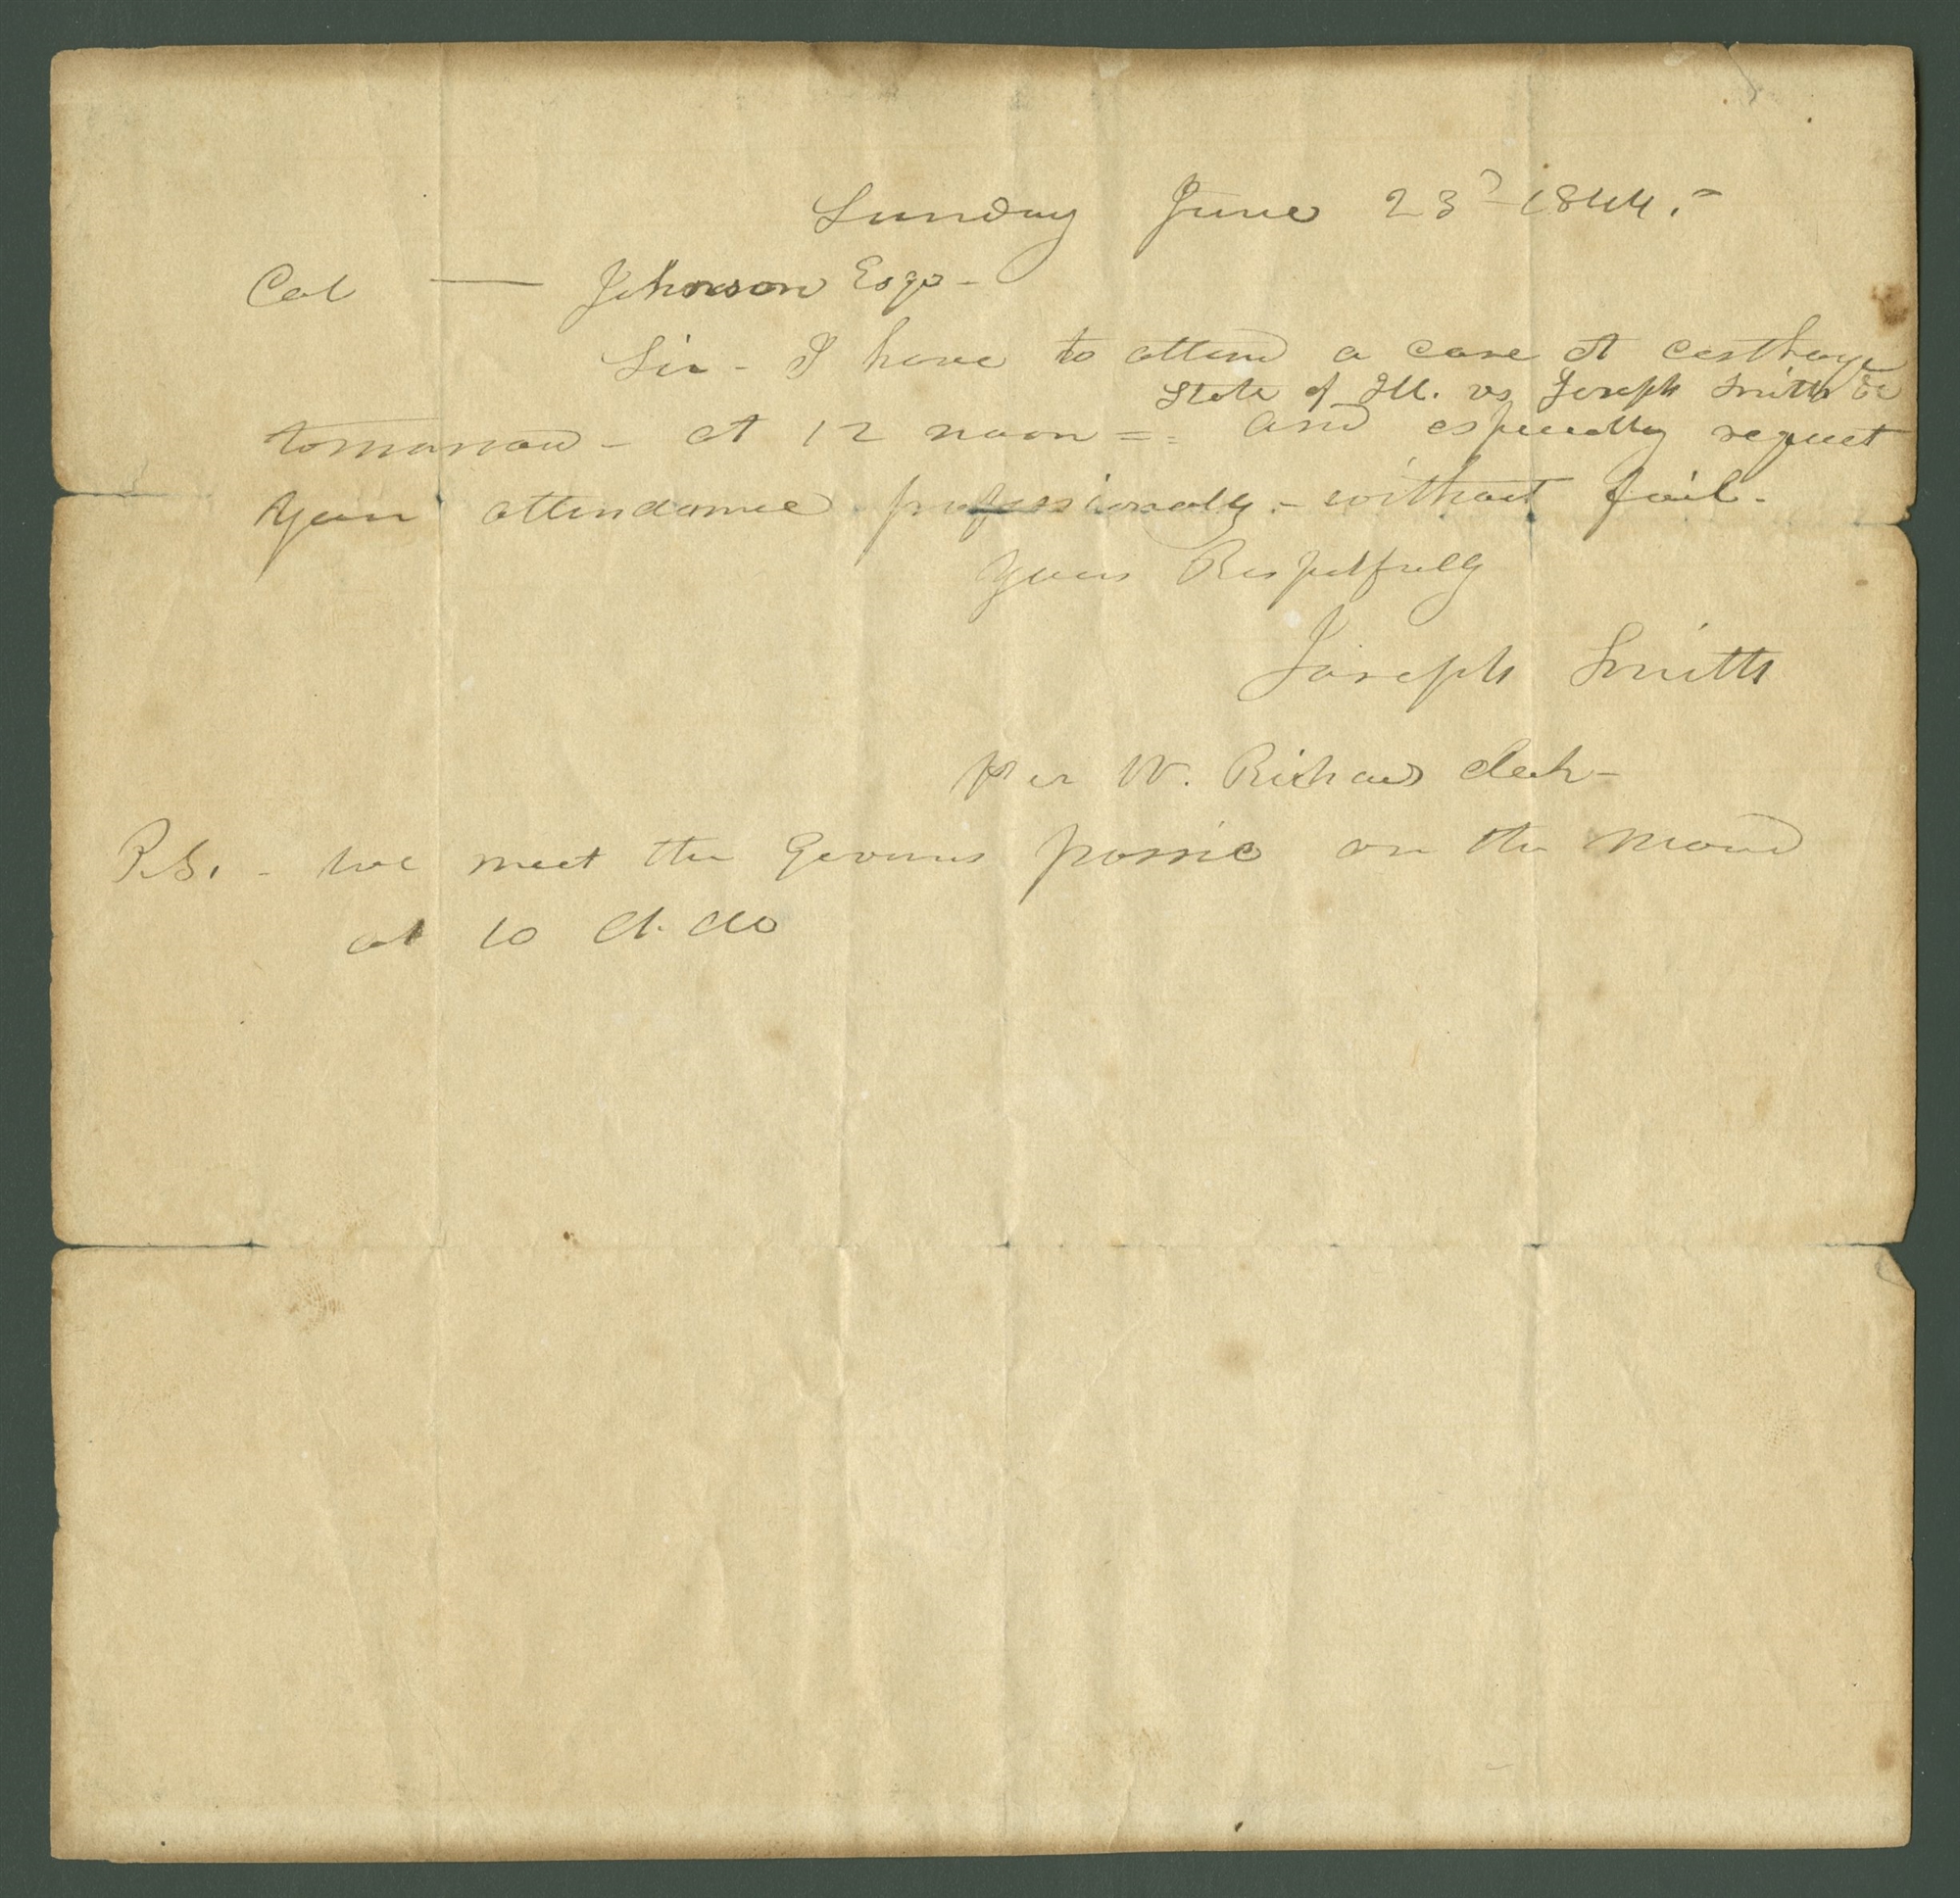 Sunday June 23d 1844.
Col — Johnson Esqr -
Sir - I have to attend a case at carthage
State of Ill. vs Joseph Smith &c
tomorrow - at 12 noon = and especially request
Your attendance professionally. - without fail.
Yours Respetfully
Joseph Smith
per W. Richards clerk -
P.S. - We meet the Governors possie on the mound
at 10